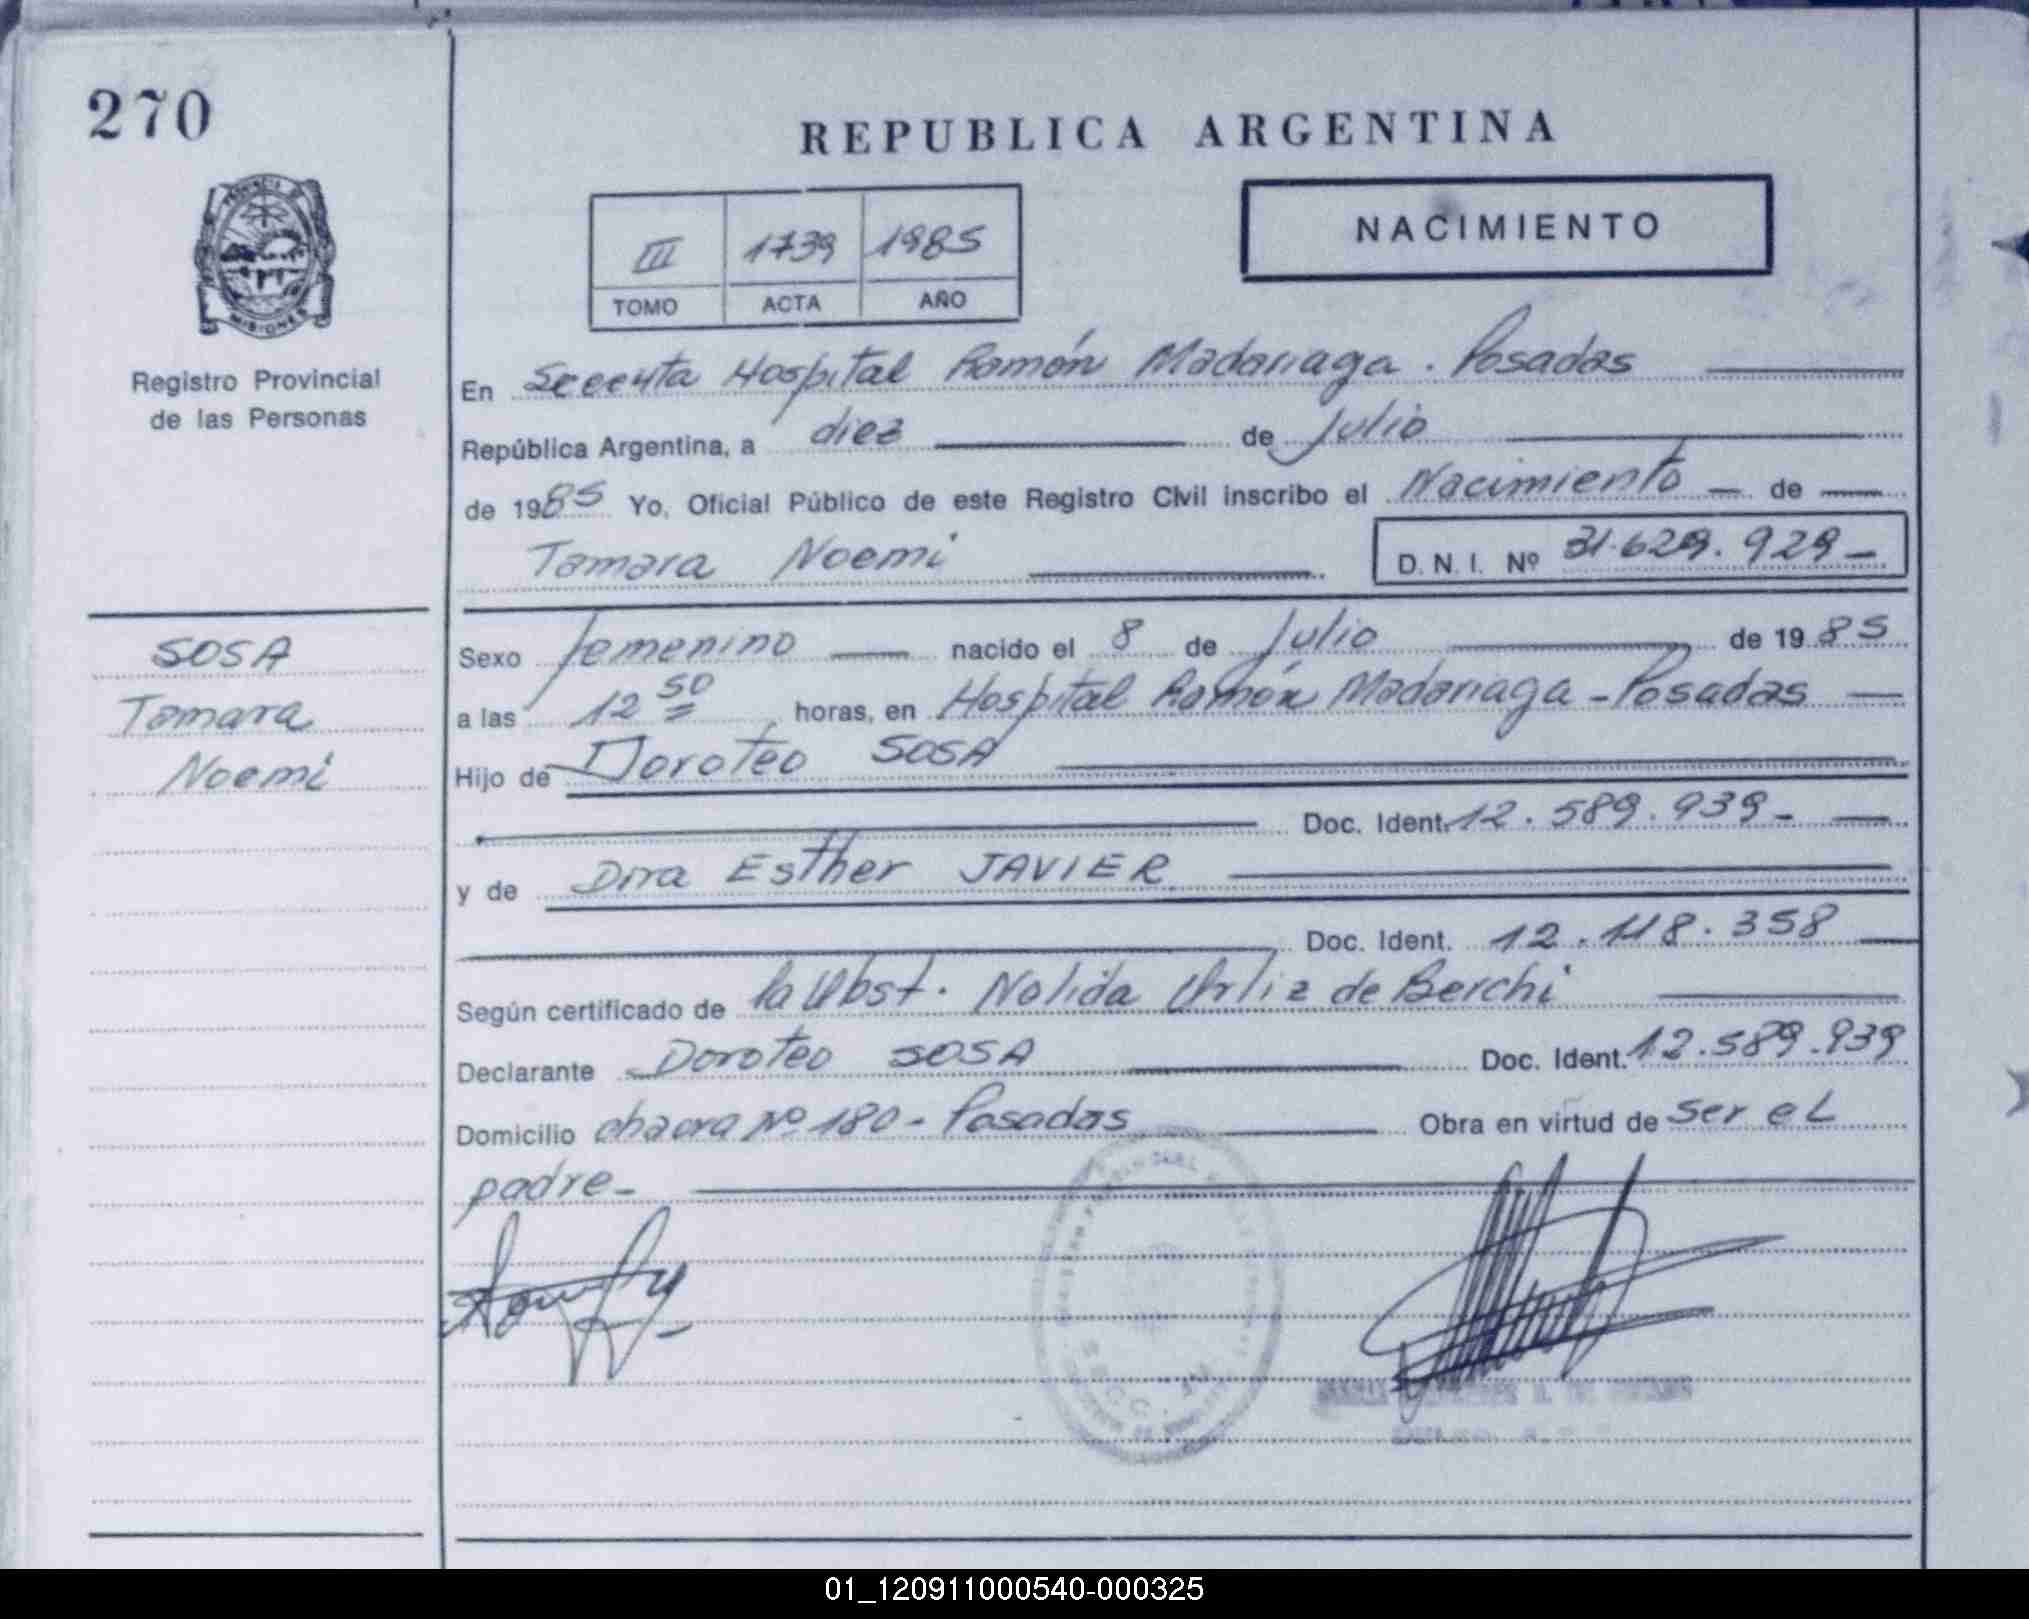 270
REPUBLICA ARGENTINA
PROVINCIA DE
MISIONES
III 1739 1985
TOMO ACTA AÑO
NACIMIENTO
Registro Provincial
de las Personas
En Hospital Ramón Madariaga. Posadas
República Argentina, a diez de Julio
de 1985 Yo, Oficial Público de este Registro Civil inscribo el Nacimiento - de
Tamara Noemi D.N.I. Nº 31.629.929-
SOSA
Tamara
Noemi
Sexo femenino nacido el 8 de Julio de 1985
a las 12 50 horas, en Hospital Ramón Madariaga - Posadas
Hijo de Doroteo SOSA
Doc. Ident. 12.589.939-
y de Esther JAVIER
Doc. Ident. 12.118.358
Según certificado de la Obst. Nolida Ortiz de Berchi
Declarante Doroteo SOSA Doc. Ident. 12.589.939
Domicilio chacra Nº 180 - Posadas Obra en virtud de ser el
padre-
01_120911000540-000325